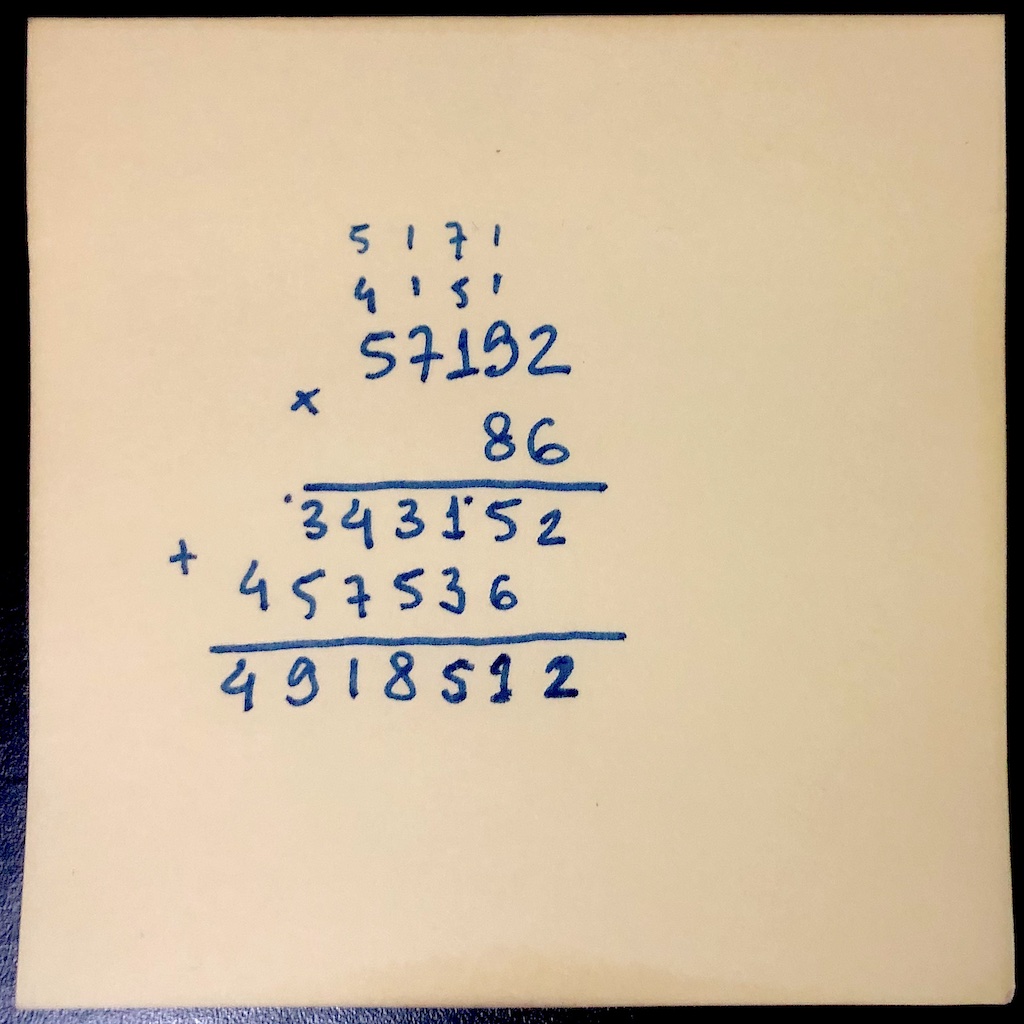 5 1 7 1
4 1 5 1
57192
×
86
343152
+
457536
4918512